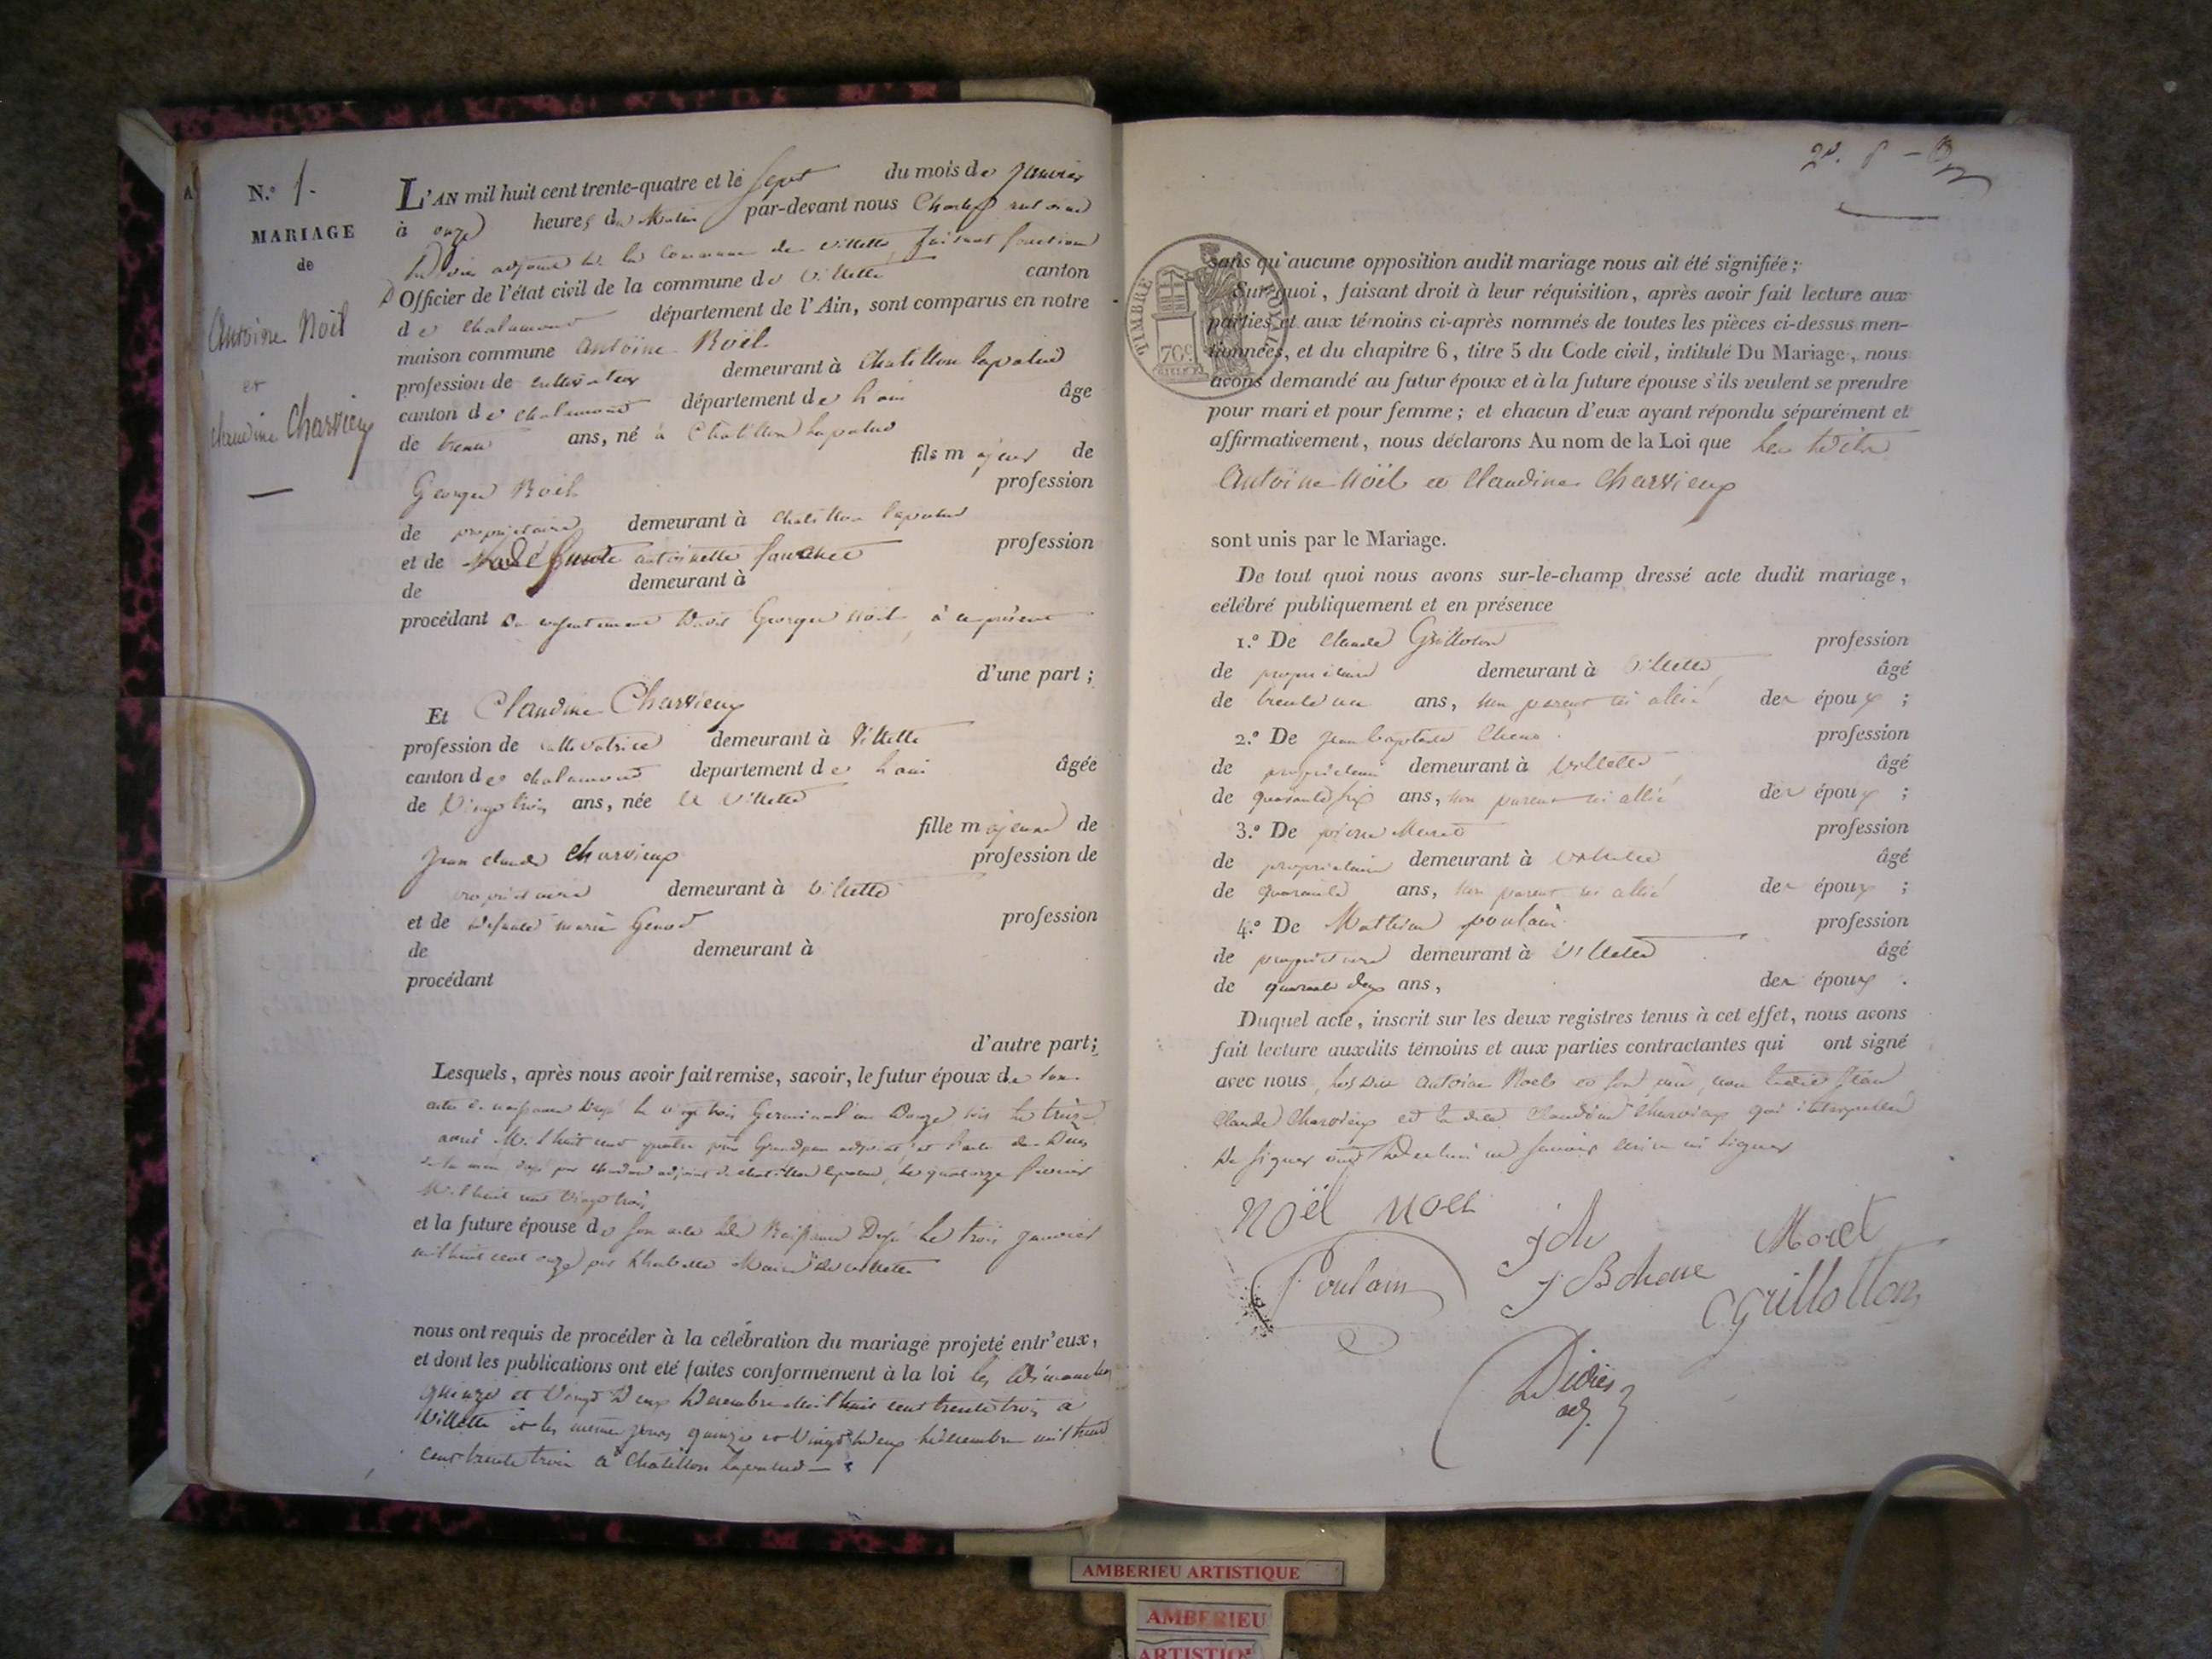 N.º 1.
MARIAGE
de
Antoine Noël
et
Claudine Charvieux
L'AN mil huit cent trente-quatre et le sept du mois de janvier
à onze heures du Matin par-devant nous Charles antoine
Didier adjoint de la Commune de Villette faisant fonctions
D'Officier de l'état civil de la commune de Villette canton
de Chalamont département de l'Ain, sont comparus en notre
maison commune Antoine Noël
profession de cultivateur demeurant à Chatillon lapalud
canton de chalamont département de l'ain âge
de trente ans, né à Chatillon Lapalud
fils majeur de
George Noël profession
de propriétaire demeurant à Chatillon lapalud
et de défunte antoinette profession
de demeurant à
procédant du consentement dudit George noël, à ce présent
d'une part ;
Et Claudine Charvieux
profession de cultivatrice demeurant à Villette
canton de chalamont departement de l'ain âgée
de Vingt trois ans, née à Villette
fille majeure de
Jean claude Charvieux profession de
propriétaire demeurant à Villette
et de défunte marie Genod profession
de demeurant à
procédant
d'autre part;
Lesquels, après nous avoir fait remise, savoir, le futur époux de son
acte de naissance du vingt trois Germinal an Douze soit le treize
avril Mil huit cent quatre par Grandjean adjoint, et l'acte de Décès
de sa mère par adjoint de chatillon lapalud, le quatorze fevrier
Mil huit cent Vingt trois
et la future épouse de son acte de Naissance le trois janvier
mil huit cent onze par Maire de villette
nous ont requis de procéder à la célébration du mariage projeté entr'eux,
et dont les publications ont eté faites conformement à la loi les dimanches
quinze et Vingt Deux Décembre mil huit cent trente trois à
Villette et les mêmes jours quinze et Vingt deux décembre mil huit
cent trente trois à Chatillon Lapalud
sans qu'aucune opposition audit mariage nous ait été signifiée ;
Sur quoi, faisant droit à leur réquisition, après avoir fait lecture aux
parties et aux témoins ci-après nommés de toutes les pièces ci-dessus men-
tionnées, et du chapitre 6, titre 5 du Code civil, intitulé Du Mariage, nous
avons demandé au futur époux et à la future épouse s'ils veulent se prendre
pour mari et pour femme ; et chacun d'eux ayant répondu séparément et
affirmativement, nous déclarons Au nom de la Loi que les dits
Antoine Noël et Claudine Charvieux
TIMBRE ROYAL
70c
sont unis par le Mariage.
De tout quoi nous avons sur-le-champ dressé acte dudit mariage,
célébré publiquement et en présence
1.º De Claude Grilloton profession
de propriétaire demeurant à Villette âgé
de trente un ans, non parent ni allié des époux ;
2.º De Jean baptiste Chene profession
de propriétaire demeurant à Villette âgé
de quarante six ans, non parent ni allié des époux ;
3.º De pierre Moret profession
de propriétaire demeurant à Villette âgé
de quarante ans, non parent ni allié des époux ;
4.º De Mathieu poulain profession
de propriétaire demeurant à Villette âgé
de quarante deux ans, des époux .
Duquel acte, inscrit sur les deux registres tenus à cet effet, nous avons
fait lecture auxdits témoins et aux parties contractantes qui ont signé
avec nous, les dits Antoine Noël et son père, non ledit Jean
Claude Charvieux et la dite Claudine Charvieux qui interpellés
de signer ont declaré ne savoir écrire ni signer
Noël Noel
Poulain
J B chene
Moret
C grillotton
Didier
adj.
AMBERIEU ARTISTIQUE
AMBERIEU
ARTISTIQ